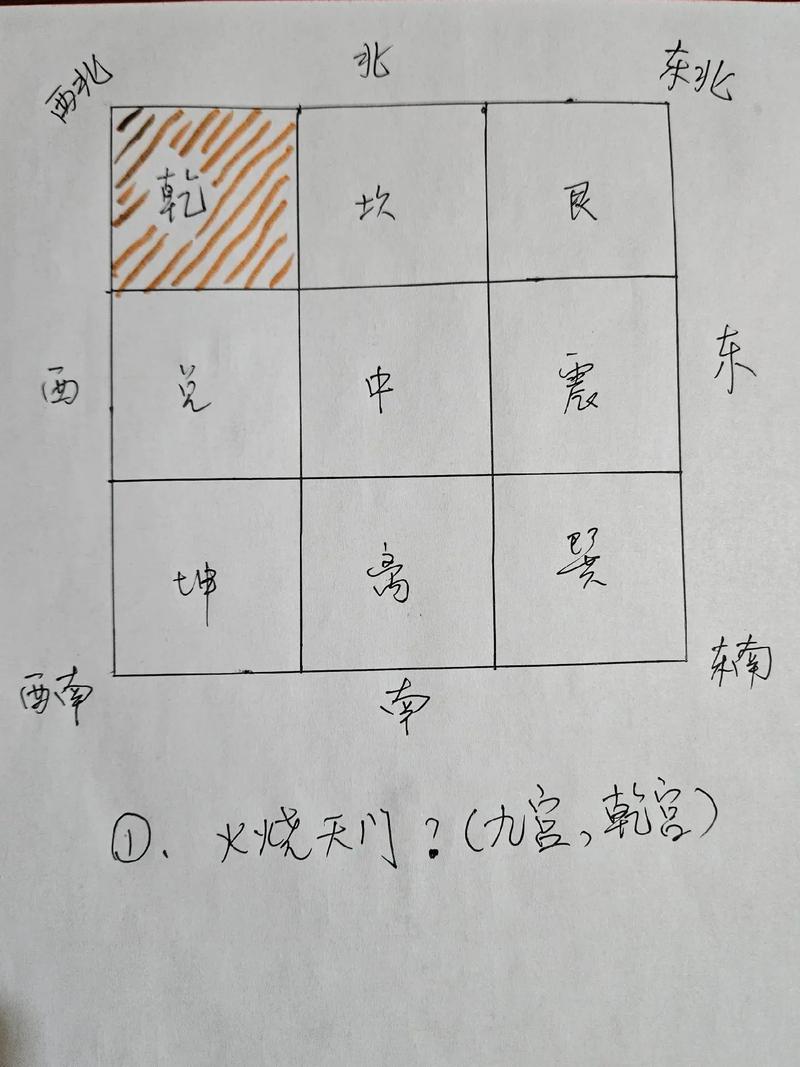 西北 北 东北
乾 坎 艮
西 兑 中 震 东
坤 离 巽
西南 南 东南
①. 火烧天门?(九宫,乾宫)